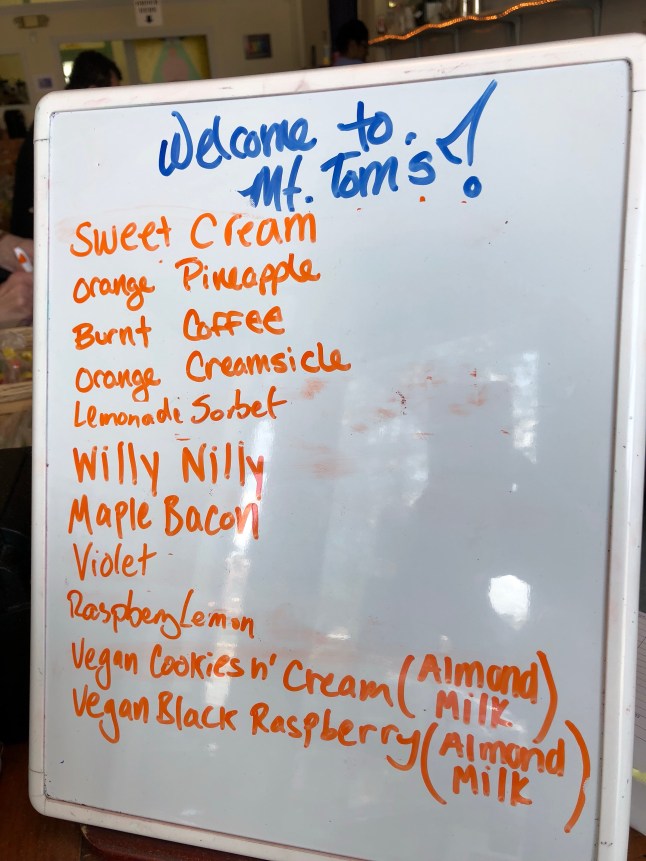 Welcome to
Mt. Tom's!
Sweet Cream
Orange Pineapple
Burnt Coffee
Orange Creamsicle
Lemonade Sorbet
Willy Nilly
Maple Bacon
Violet
Raspbery Lemon
Vegan Cookies n' Cream (Almond
Milk)
Vegan Black Raspberry (Almond
Milk)